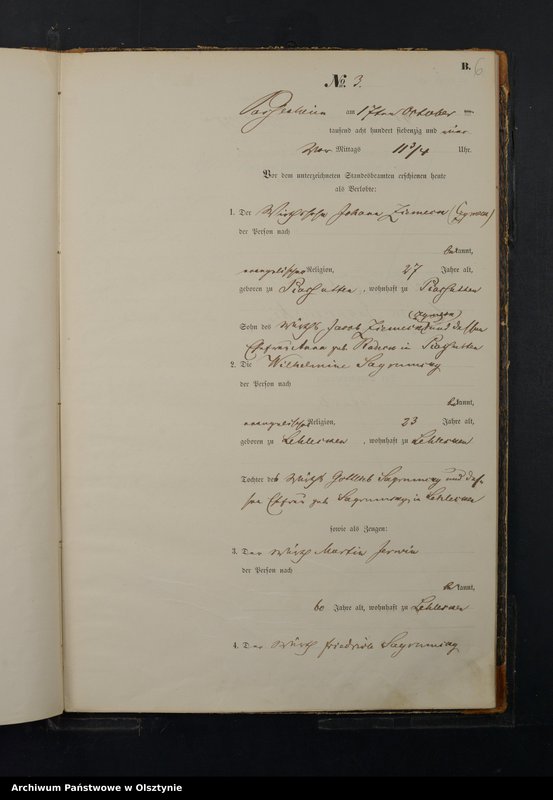 B. 6
No. 3.
am 17ten October
tausend acht hundert siebenzig und vier
Vor Mittags 11 3/4 Uhr.
Vor dem unterzeichneten Standesbeamten erschienen heute
als Verlobte:
1. Der Wirthssohn Johann
der Person nach
bekannt,
evangelischer Religion, 27 Jahre alt,
geboren zu Piassutten, wohnhaft zu Piassutten
Sohn des Wirths Jacob und dessen
Ehefrau Anna geb. in Piassutten
2. Die Wilhelmine Sagrumsky
der Person nach
bekannt,
evangelischer Religion, 23 Jahre alt,
geboren zu Lehlesken, wohnhaft zu Lehlesken
Tochter des Wirths Gottlieb Sagrumsky und des-
sen Ehefrau geb. Sagrumsky in Lehlesken
sowie als Zeugen:
3. Der Wirth Martin
der Person nach
bekannt,
60 Jahre alt, wohnhaft zu Lehlesken
4. Der Wirth Friedrich Sagrumsky
Archiwum Państwowe w Olsztynie